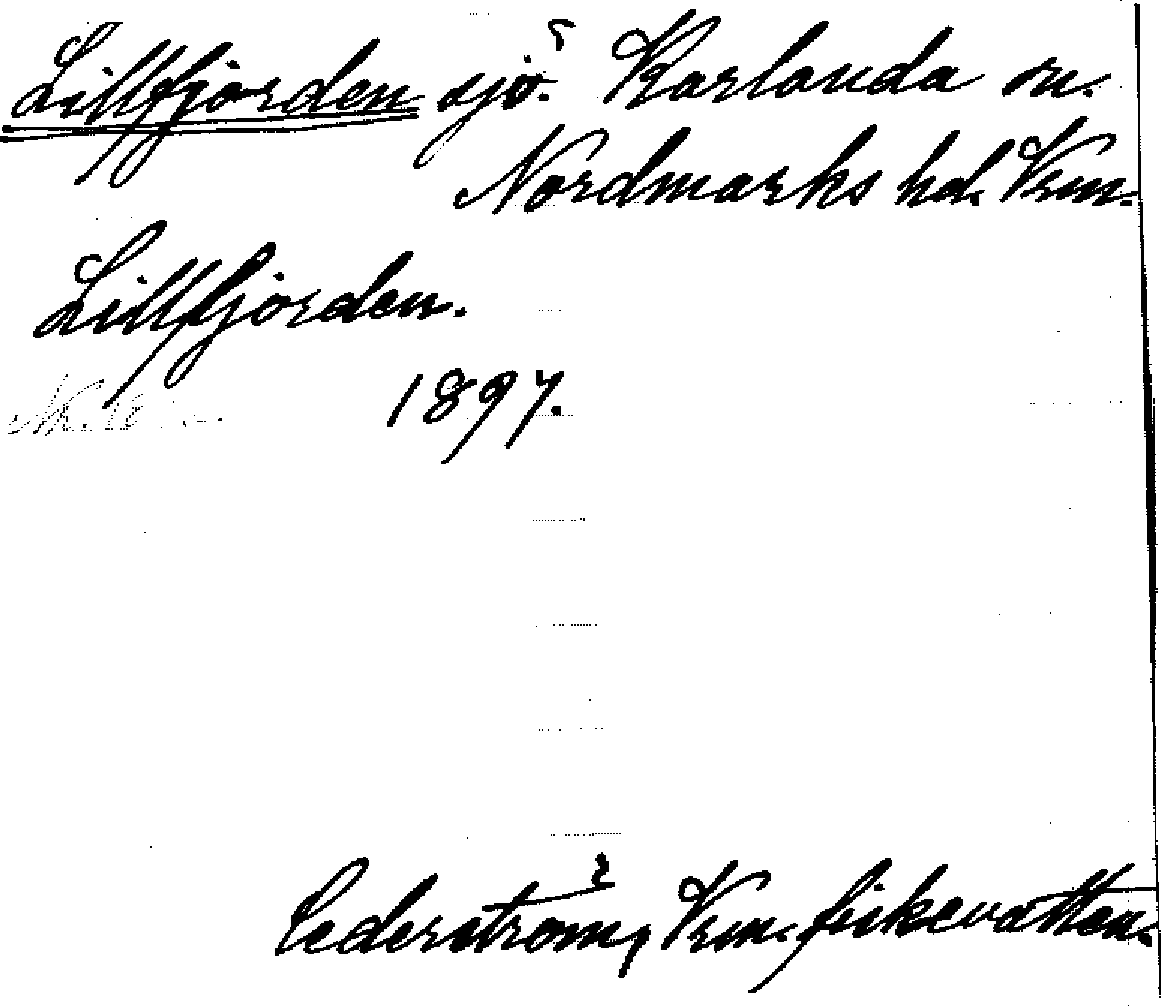 Lillfjorden sjö. Karlanda sn.
Nordmarks hd. Vrm.
Lillfjorden.
1897.
Cederström, Vrm. fiskevatten.